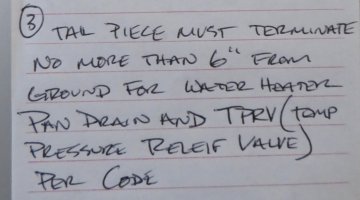 ③ TAIL PIECE MUST TERMINATE
NO MORE THAN 6" FROM
GROUND FOR WATER HEATER
PAN DRAIN AND TPRV (TEMP
PRESSURE RELEIF VALVE)
PER CODE